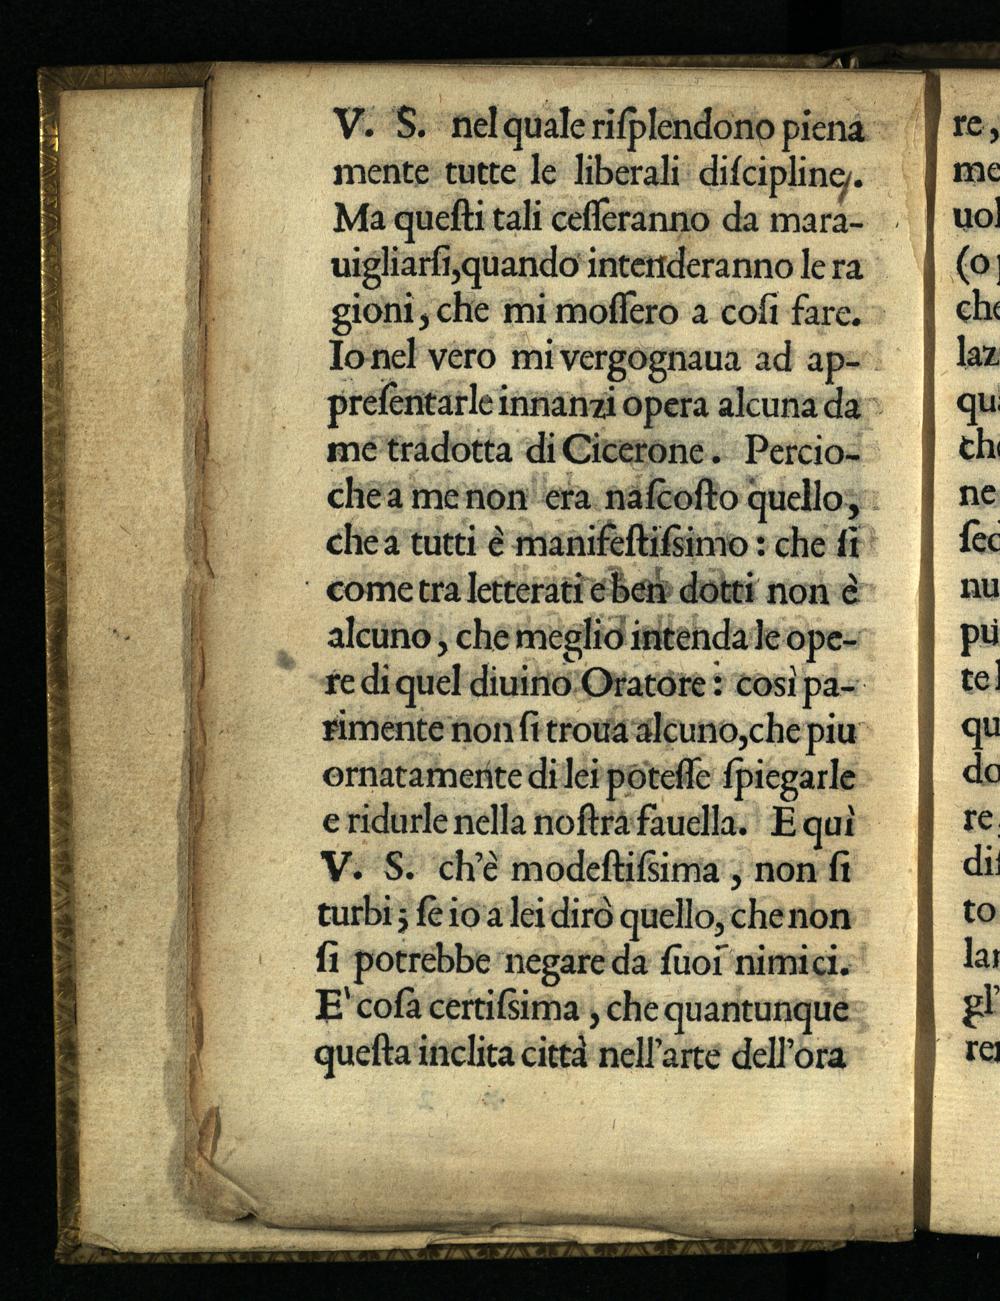 V. S. nel quale riſplendono piena
mente tutte le liberali diſcipline.
Ma queſti tali ceſſeranno da mara-
uigliarſi,quando intenderanno le ra
gioni, che mi moſſero a coſi fare.
Io nel vero mi vergognaua ad ap-
preſentarle innanzi opera alcuna da
me tradotta di Cicerone. Percio-
che a me non era naſcoſto quello,
che a tutti è manifeſtiſsimo: che ſi
come tra letterati e ben dotti non è
alcuno, che meglio intenda le ope-
re di quel diuino Oratore: così pa-
rimente non ſi troua alcuno,che piu
ornatamente di lei poteſſe ſpiegarle
e ridurle nella noſtra fauella. E quì
V. S. ch'è modeſtiſsima, non ſi
turbi; ſe io a lei dirò quello, che non
ſi potrebbe negare da ſuoi nimici.
E' coſa certiſsima, che quantunque
queſta inclita città nell'arte dell'ora
re,
me
uol
(o
che
laz
qua
che
ne
ſec
nu
pu
te
qu
do
re
diſ
to
lar
gl'
rer